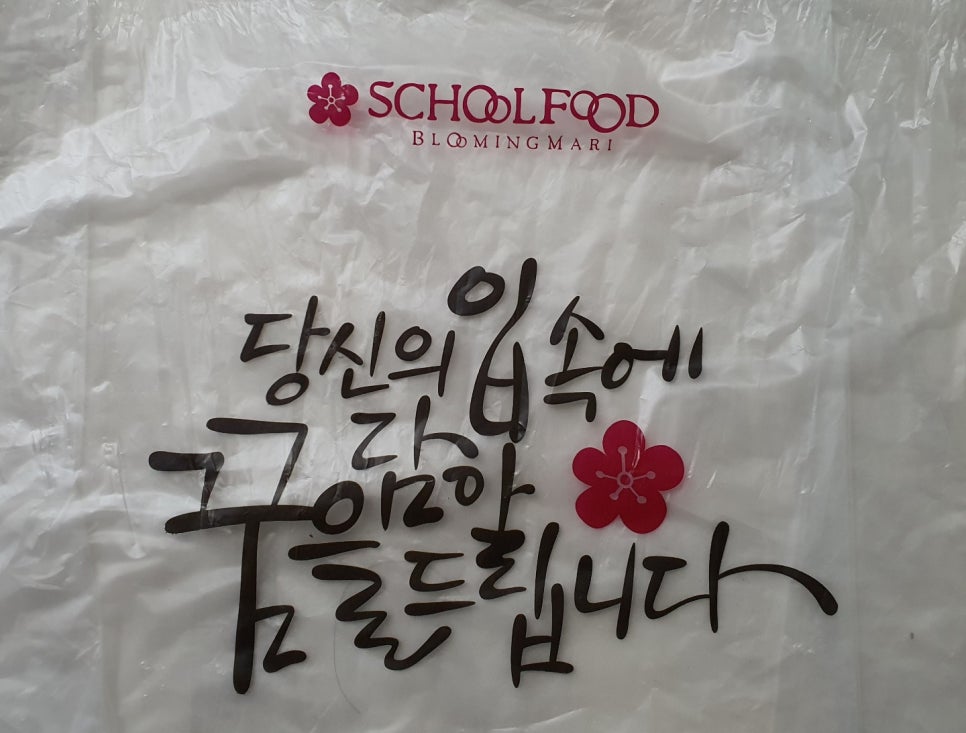 SCHOOLFOOD
BLOOMINGMARI
당신의 입속에
꿈을 담아 드립니다